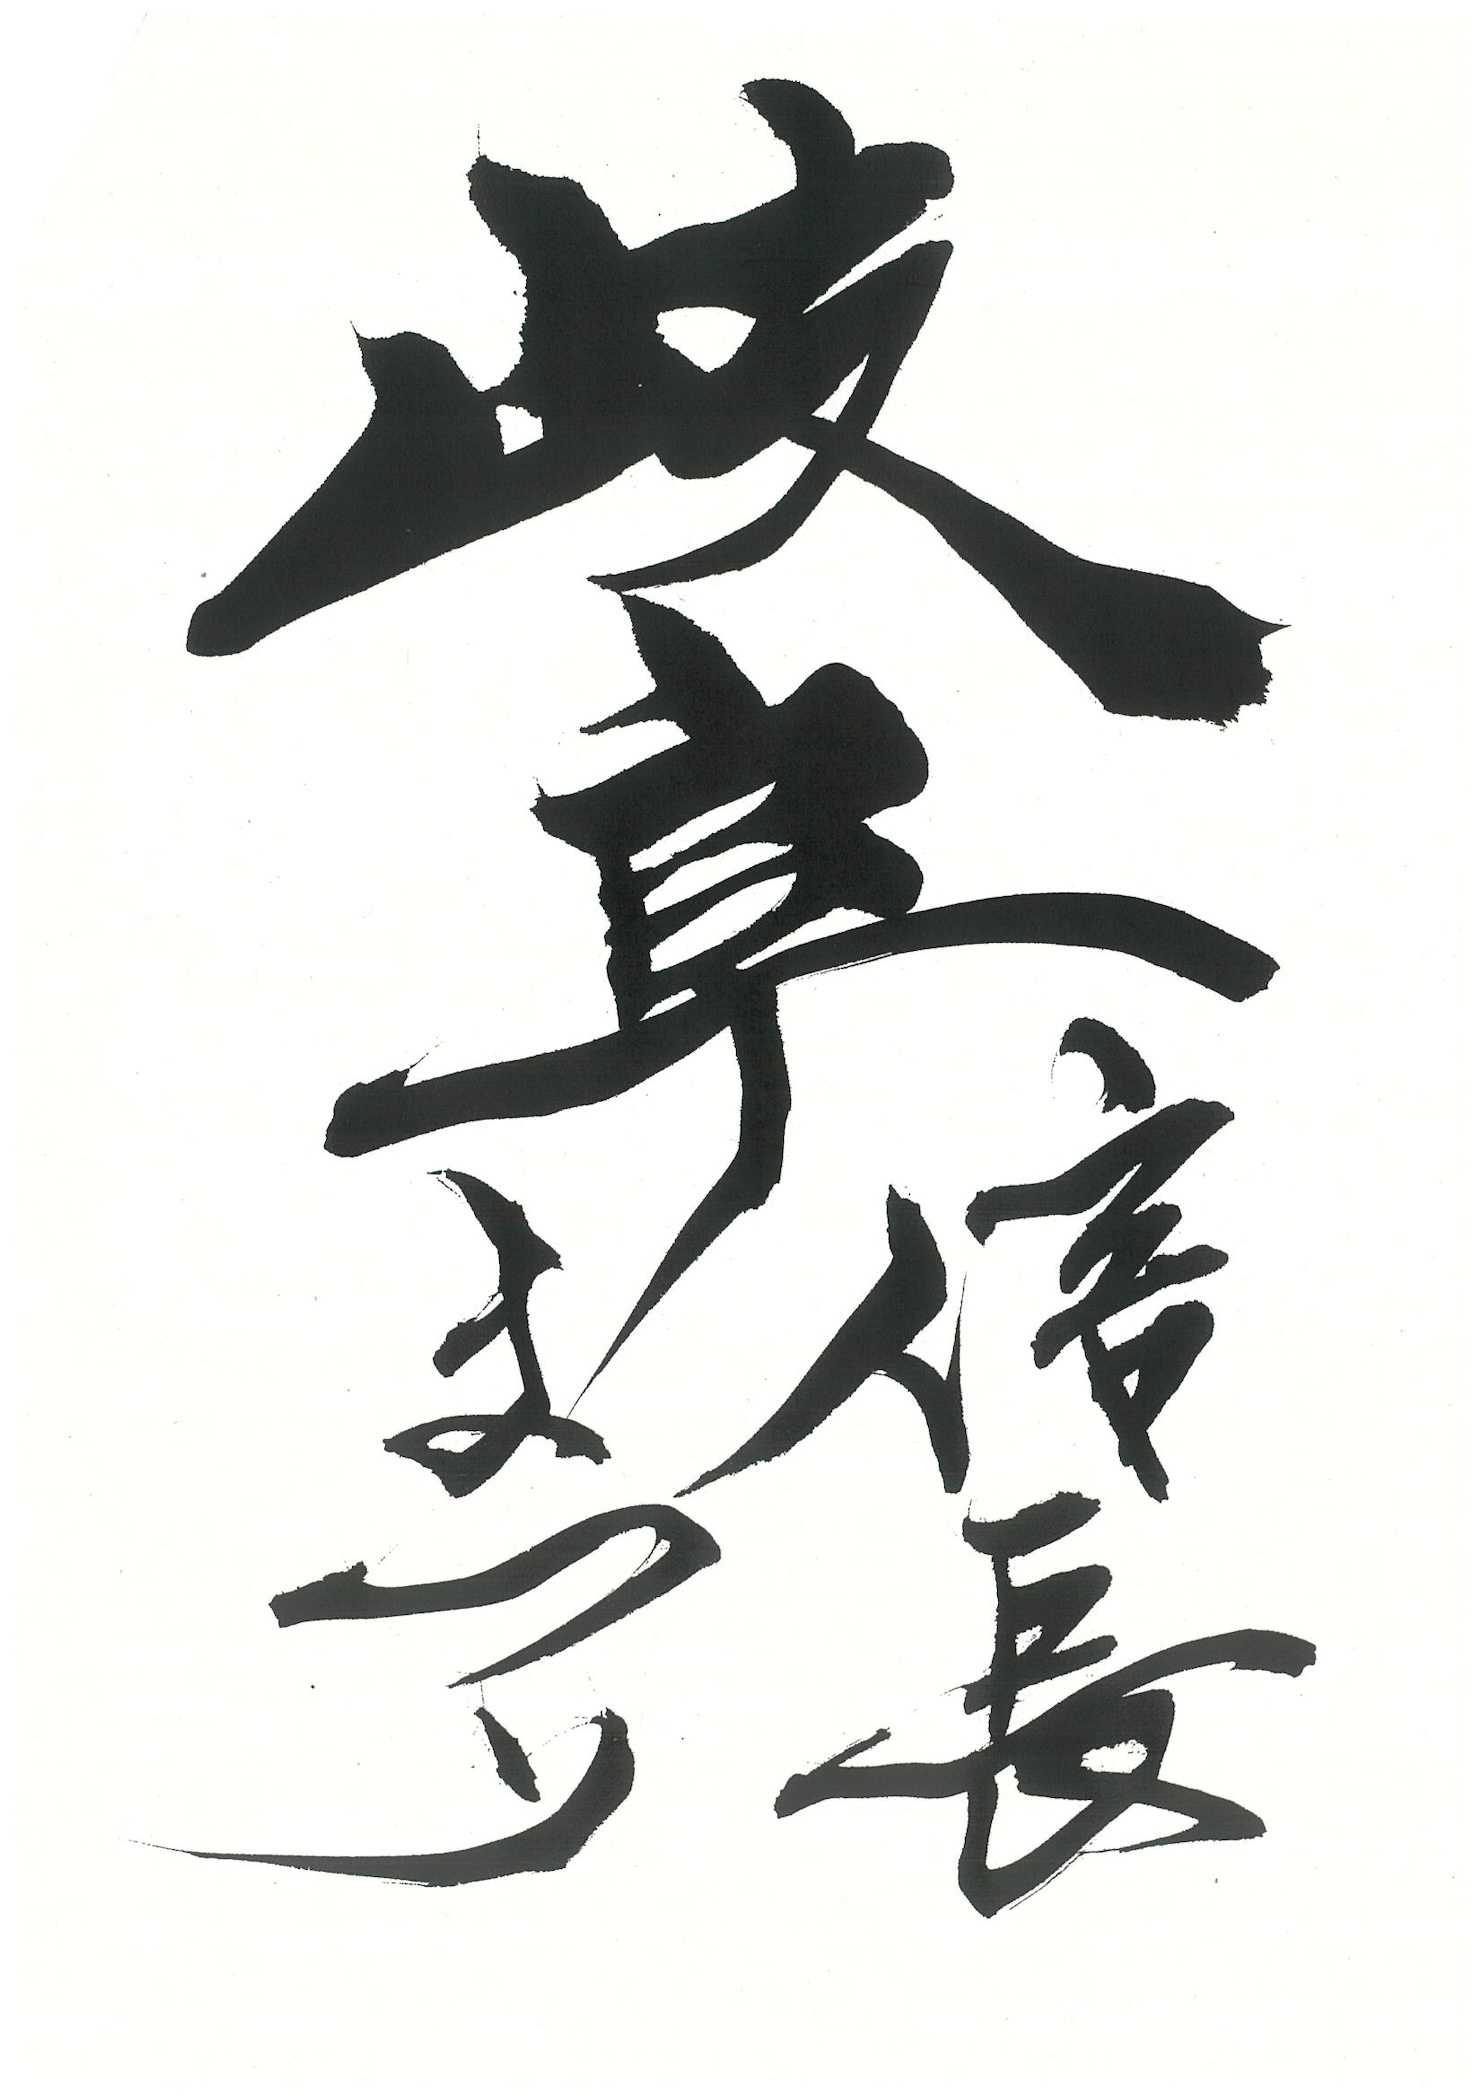 岐阜
信長
まつり